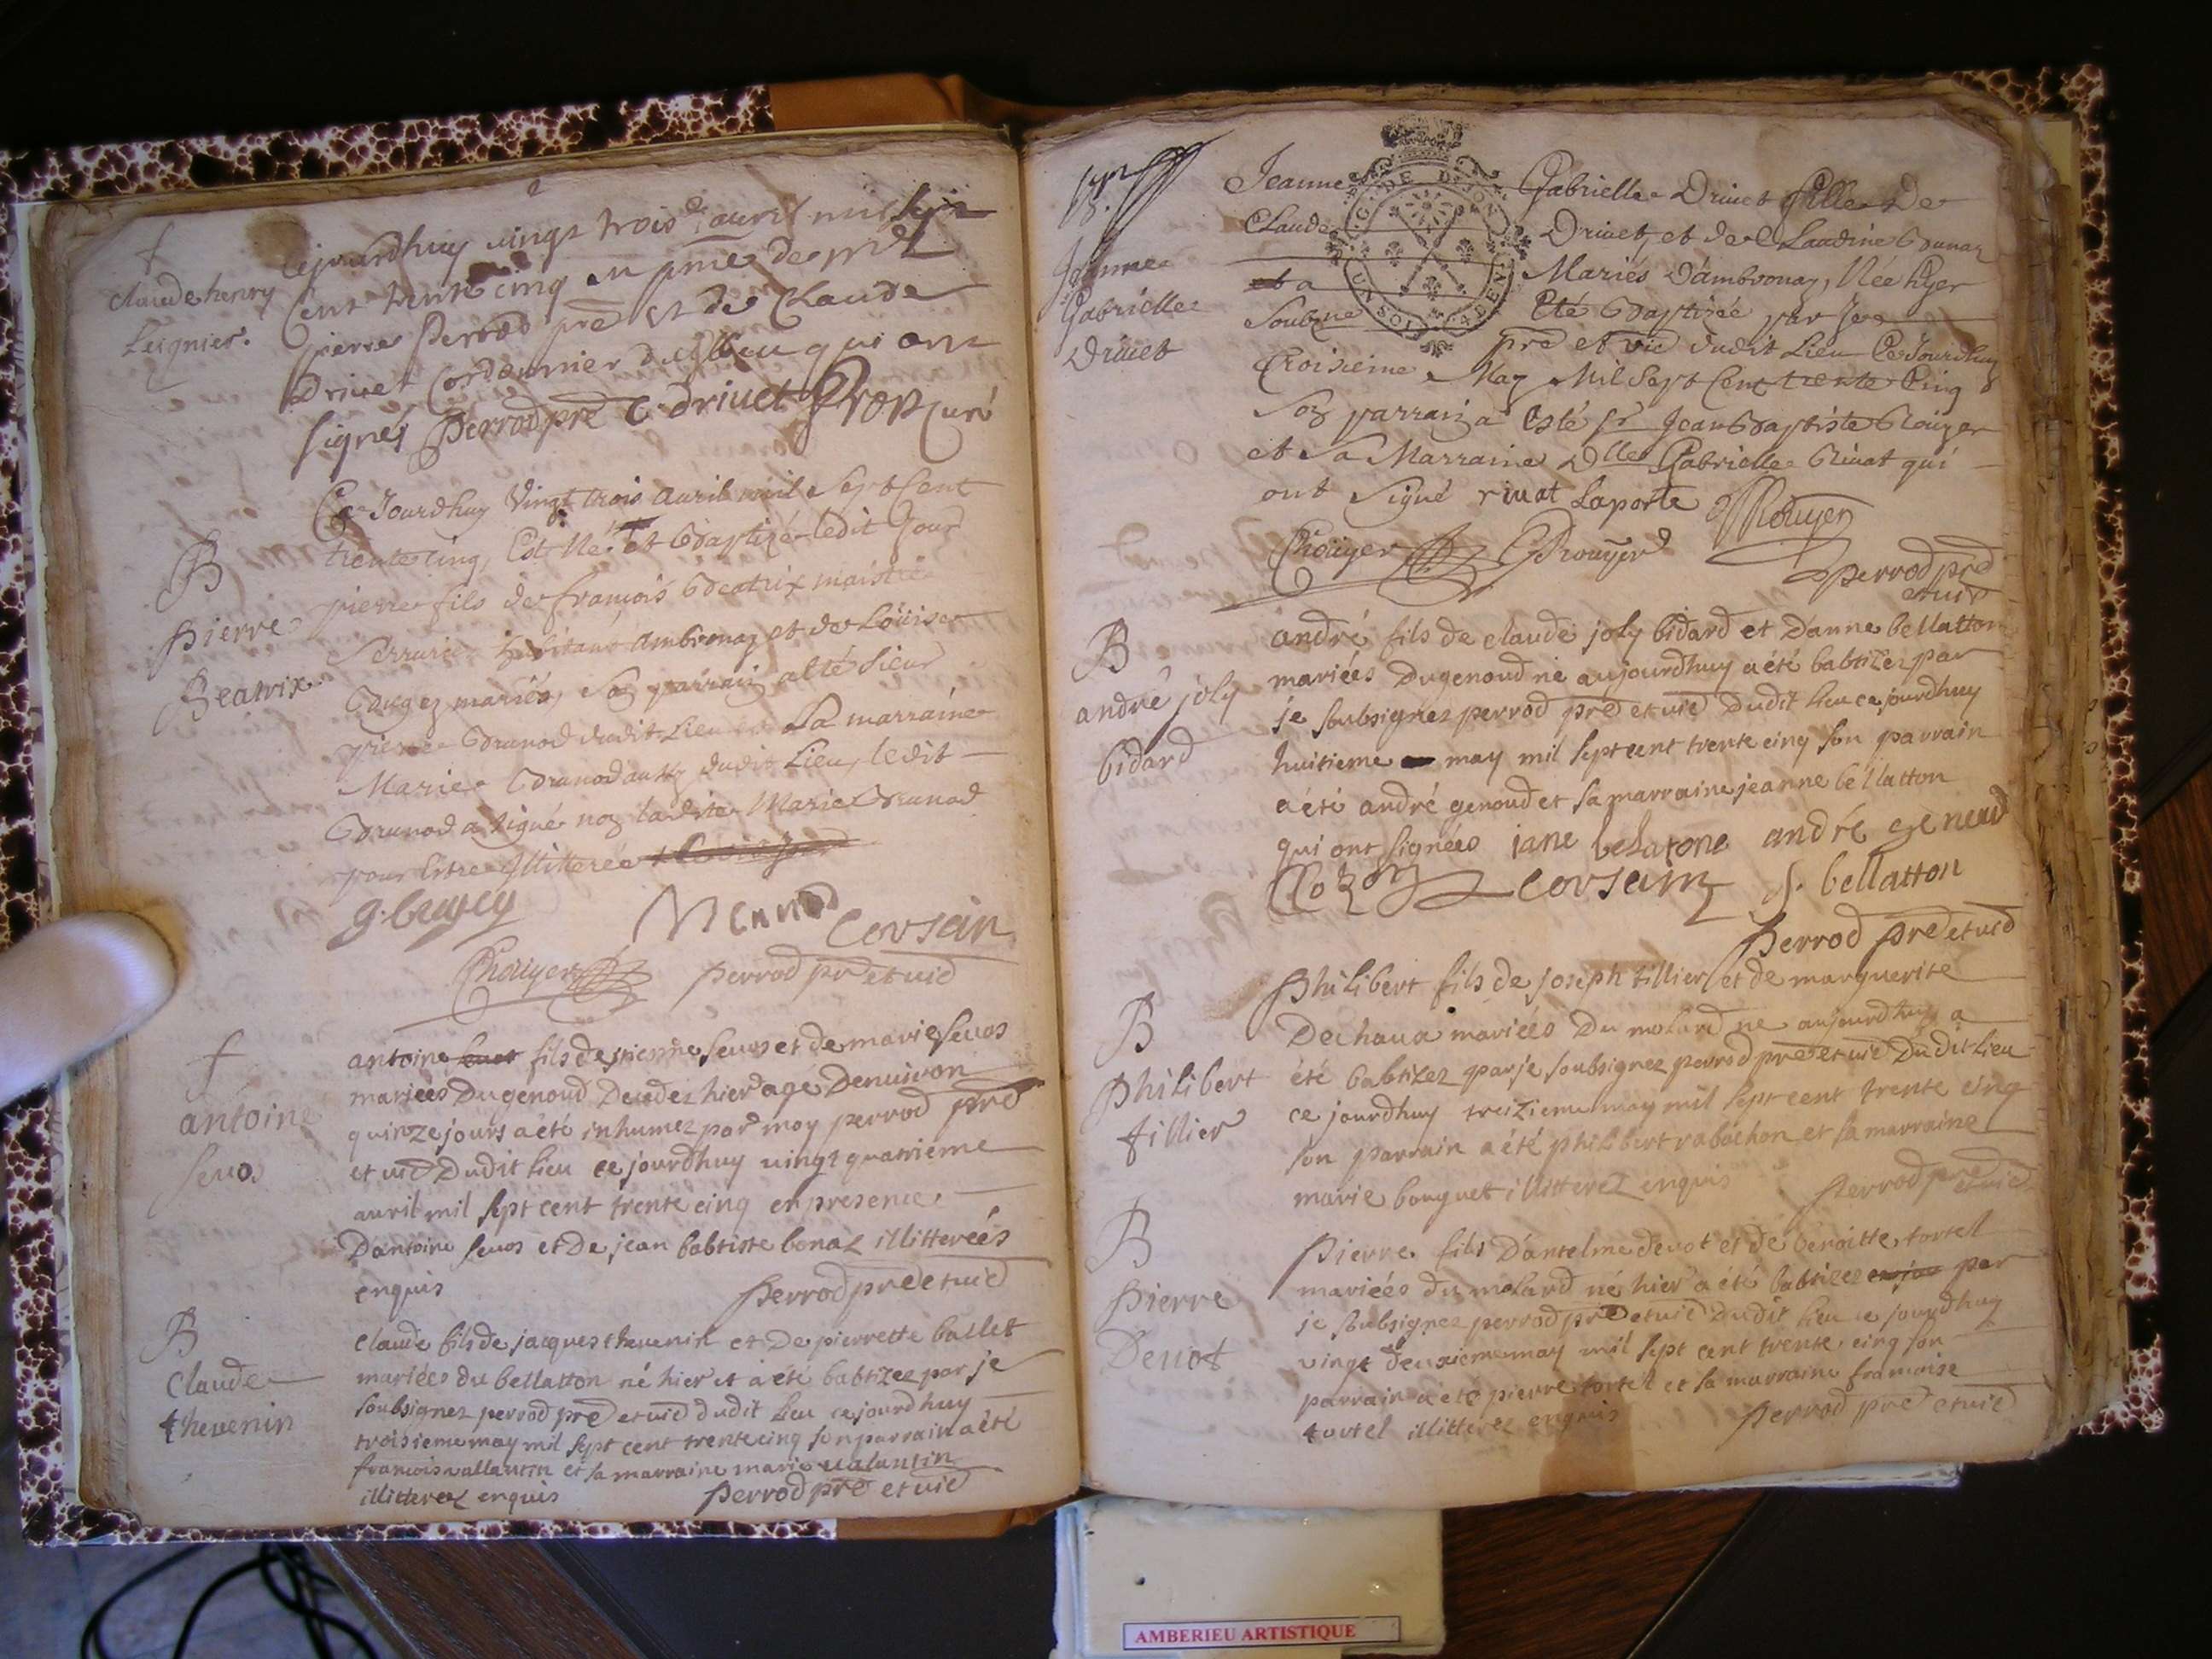 claude henry
Leignier.
cejourdhuy vingt trois avril mil sept
Cent trente cinq en pnce de mre
pierre Perrod pre et de Claude
Drivet Cordonnier dud lieu qui ont
signés Perrod pre C. drivet Curé
B
Pierre
Beatrix
Ce Jourdhuy Vingt trois auril mil Sept Cent
trente cinq, Est Né et Baptizé ledit Jour
pierre fils de françois Beatrix maistre
Serrurier habitant Ambronay et de Loüise
mariés, Son parrain a Eté Sieur
pierre Brunod dudit Lieu et La marraine
Marie Brunod aussy dudit Lieu, ledit
Brunod a signé non ladite Marie Brunod
pour Estre Illitterée
Corsain
Choüyer perrod pre et uic
antoine
seuos
antoine fils de pierre seuos et de marie seuos
mariées Du genoud Decedez hier agé Denuiron
quinze jours a été inhumez par moy perrod pre
et uic Dudit lieu ce jourdhuy uingt quatrieme
auril mil sept cent trente cinq en presence
Dantoine seuos et De jean babtiste bonaz illitterées
enquis perrod pre et uic
B
Claude
thevenin
claude fils de jacques thevenin et De pierrette ballet
mariées du bellatton né hier et a été babtizez par je
soubsignez perrod pre et uic dudit lieu ce jourdhuy
troisieme may mil sept cent trente cinq son parrain a été
francois vallantin et sa marraine marie valantin
illitterez enquis perrod pre et uic
Jeanne
Gabrielle
Drivet
Jeanne Gabrielle Drivet fille De
Claude Drivet, et de Claudine Bonnaz
Mariés D'ambronay, Née hyer
et a Eté Baptizée par Je
Soubne pre et vic dudit Lieu Ce Jourdhuy
Troisieme May Mil Sept Cent trente Cinq
Son parrain a Esté Sr Jean Baptiste Roüyer
et Sa Marraine Dlle Gabrielle Rivat qui
ont Signé rivat Laporte Roüyer
Choüyer Rouyer
perrod pre
et uic
B
andré joly
bidard
andré fils de claude joly bidard et D'anne bellatton
mariées Du genoud né aujourdhuy a été babtizez par
je soubsignez perrod pre et uic Dudit lieu ce jourdhuy
huitieme may mil sept cent trente cinq son parrain
a été andré genoud et sa marraine jeanne bellatton
qui ont signées jane belatone andré genoud
corsain bellatton
perrod pre et uic
B
philibert
tillier
Philibert fils de joseph tillier et de marguerite
Dechaux mariées Du molard né aujourdhuy a
été babtizez par je soubsignez perrod pre et uic Dudit lieu
ce jourdhuy treizieme may mil sept cent trente cinq
son parrain a été philibert rabachon et sa marraine
marie bouquet illitterez enquis perrod pre
et uic
B
Pierre
Devot
Pierre fils D'antelme devot et de benoitte tortel
mariées du molard né hier a été babtizez par
je soubsignez perrod pre et uic Dudit lieu ce jourdhuy
vingt deuxieme may mil sept cent trente cinq son
parrain a été pierre tortel et sa marraine francoise
tortel illitterez enquis perrod pre et uic
AMBERIEU ARTISTIQUE